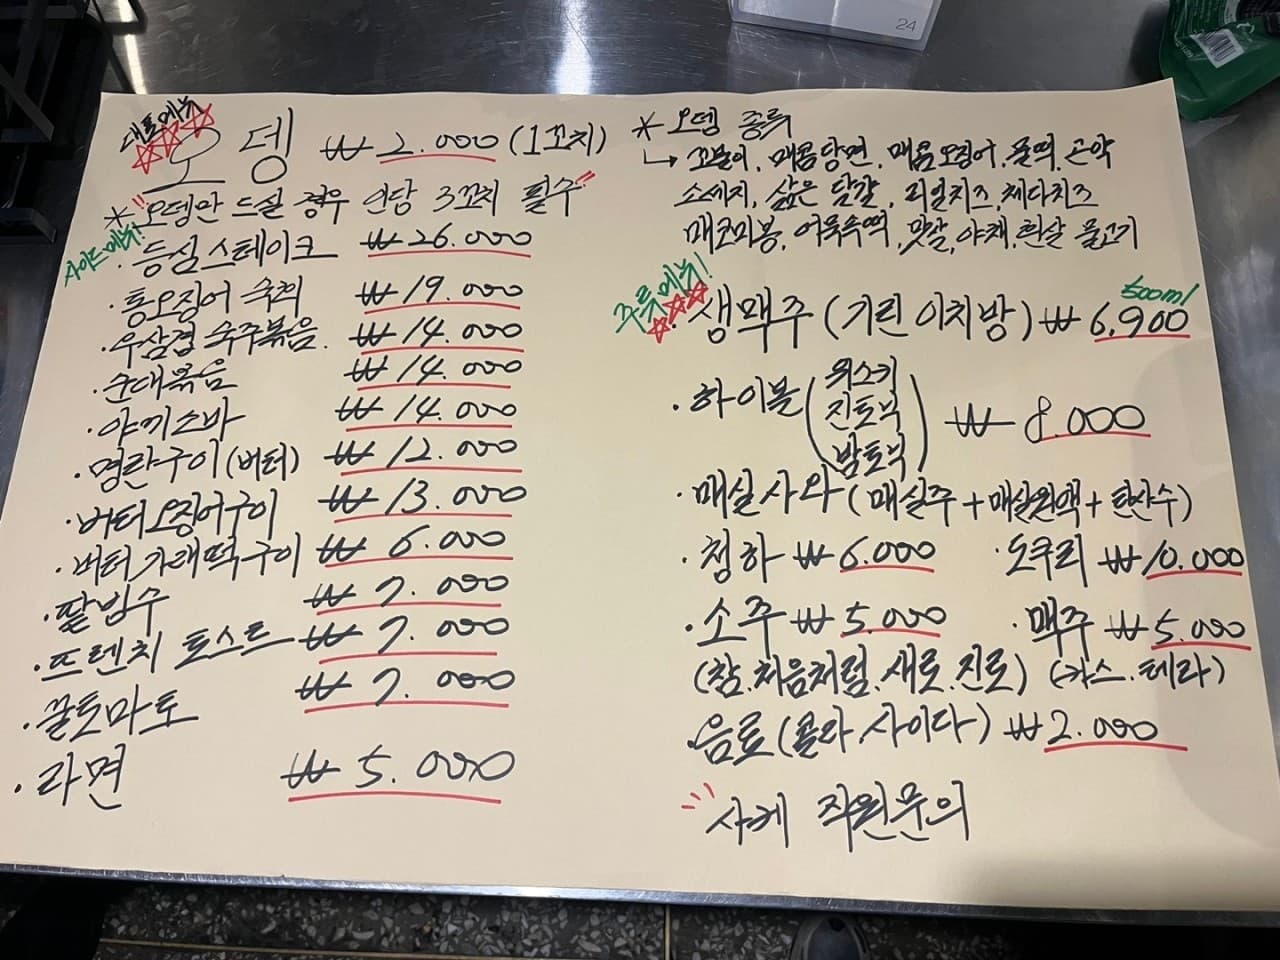 24
대표메뉴
오뎅 ₩2.000 (1꼬치)
* "오뎅만 드실 경우 인당 3꼬치 필수"
사이드메뉴!
· 등심 스테이크 ₩26.000
· 통오징어 숙회 ₩19.000
· 우삼겹 숙주볶음. ₩14.000
· 순대볶음 ₩14.000
· 야끼소바 ₩14.000
· 명란구이(버터) ₩12.000
· 버터오징어구이 ₩13.000
· 버터가래떡구이 ₩6.000
· 팥빙수 ₩7.000
· 프렌치 토스트 ₩7.000
· 꿀토마토 ₩7.000
· 라면 ₩5.000
* 오뎅 종류
↳ 꼬불이, 매콤당면, 매콤오징어, 물떡, 곤약
소세지, 삶은 달걀, 리얼치즈, 체다치즈
매코미봉, 어묵속떡, 맛살, 야채, 흰살 물고기
주류메뉴!
· 생맥주 (기린 이치방) 500ml ₩6,900
· 하이볼 (위스키
진토닉
밤토닉) ₩8.000
· 매실사와 (매실주+매실원액+탄산수)
· 청하 ₩6.000 · 도쿠리 ₩10.000
· 소주 ₩5.000 · 맥주 ₩5.000
(참.처음처럼.새로.진로) (카스.테라)
· 음료 (콜라.사이다) ₩2.000
사케 직원문의